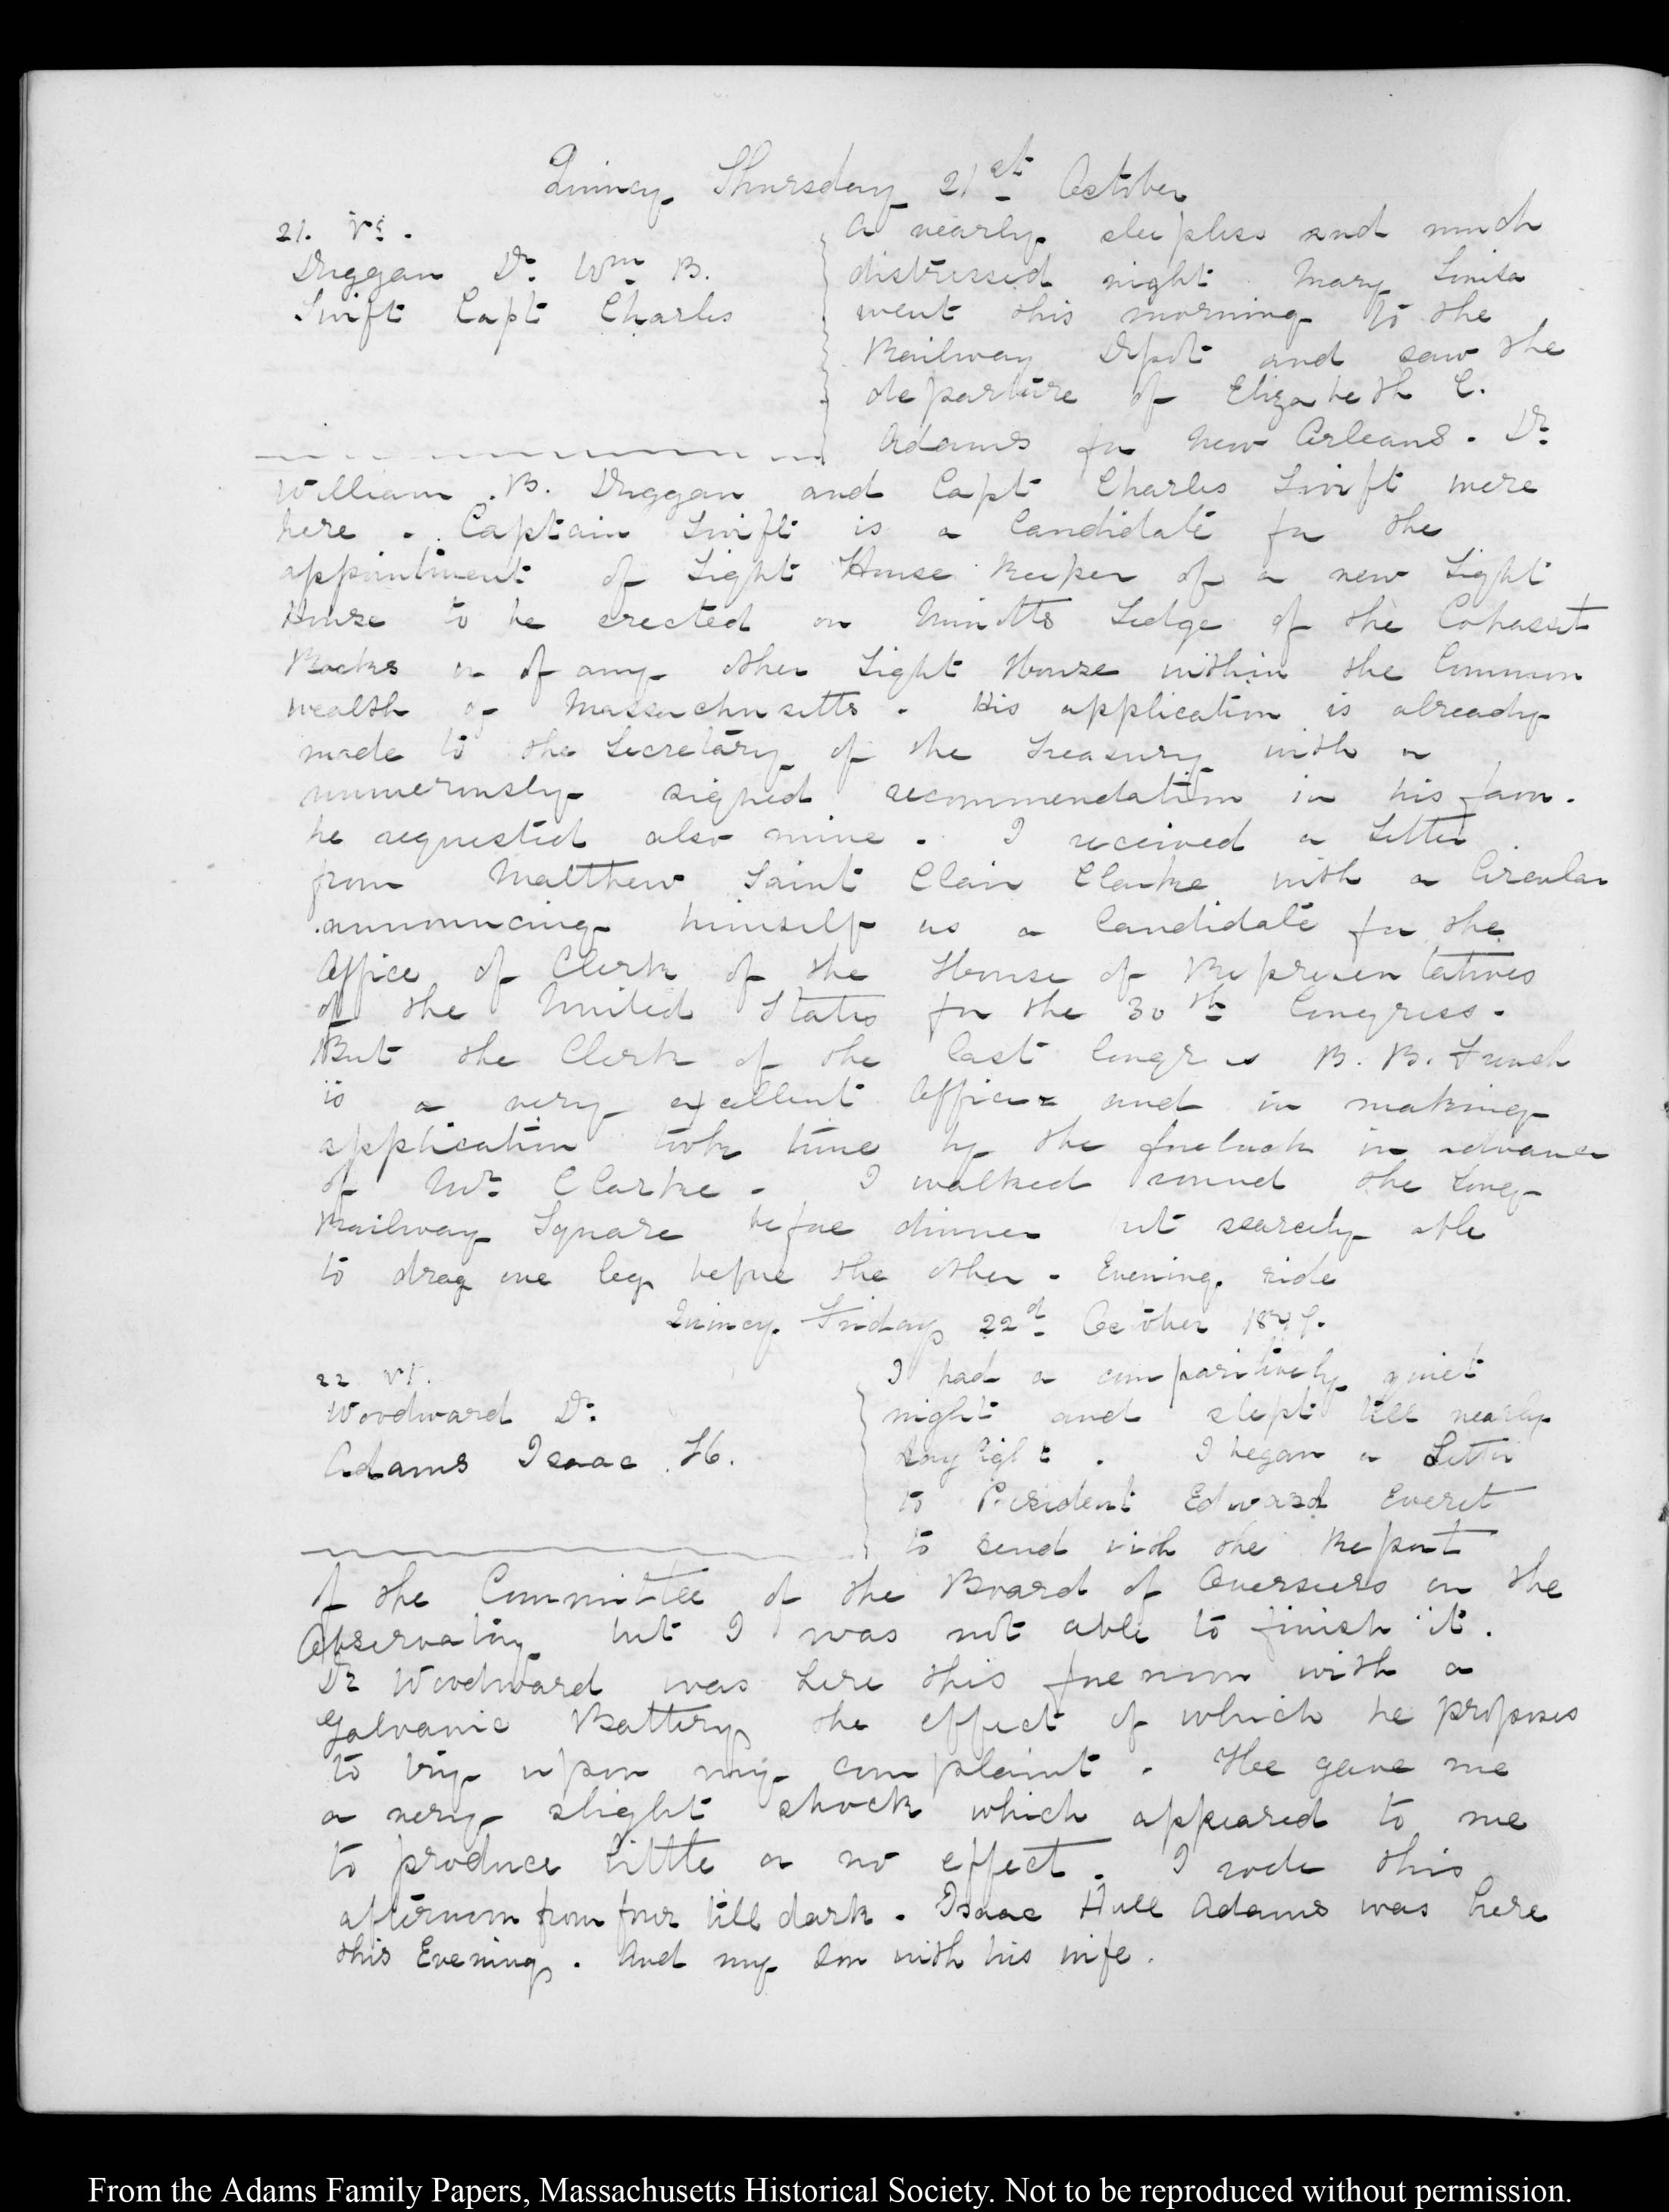 Quincy Thursday 21st October
21. VI.
Duggan Dr. Wm B.
Swift Capt Charles
A nearly sleepless and much
distressed night. Mary Louisa
went this morning to the
Railway Depot and saw the
departure of Elizabeth C.
Adams for New Orleans. Dr.
William B. Duggan and Capt Charles Swift were
here. Captain Swift is a Candidate for the
appointment of Light House Keeper of a new Light
House to be erected on Minotts Ledge of the Cohasset
Rocks or of any other Light House within the Common
wealth of Massachusetts. His application is already
made to the Secretary of the Treasury with a
numerously signed recommendation in his favr.
he requested also mine. I received a Letter
from Matthew Saint Clair Clarke with a Circular
announcing himself as a Candidate for the
Office of Clerk of the House of Representatives
of the United States for the 30th Congress.
But the Clerk of the last Congress B. B. French
is a very excellent Officer and in making
application took time by the forelock in advance
of Mr. Clarke. I walked round the Long
Railway Square before dinner but scarcely able
to drag one leg before the other. Evening ride
Quincy Friday 22d October 1847.
22 VI.
Woodward Dr.
Adams Isaac H.
I had a comparitively quiet
night and slept till nearly
daylight. I began a Letter
to President Edward Everet
to send with the Report
of the Committee of the Board of Overseers on the
Observatory but I was not able to finish it.
Dr Woodward was here this forenoon with a
Galvanic Battery the effect of which he proposes
to try upon my complaint. Hee gave me
a very slight shock which appeared to me
to produce little or no effect. I rode this
afternoon from four till dark. Isaac Hull Adams was here
this Evening. And my Son with his wife.
From the Adams Family Papers, Massachusetts Historical Society. Not to be reproduced without permission.